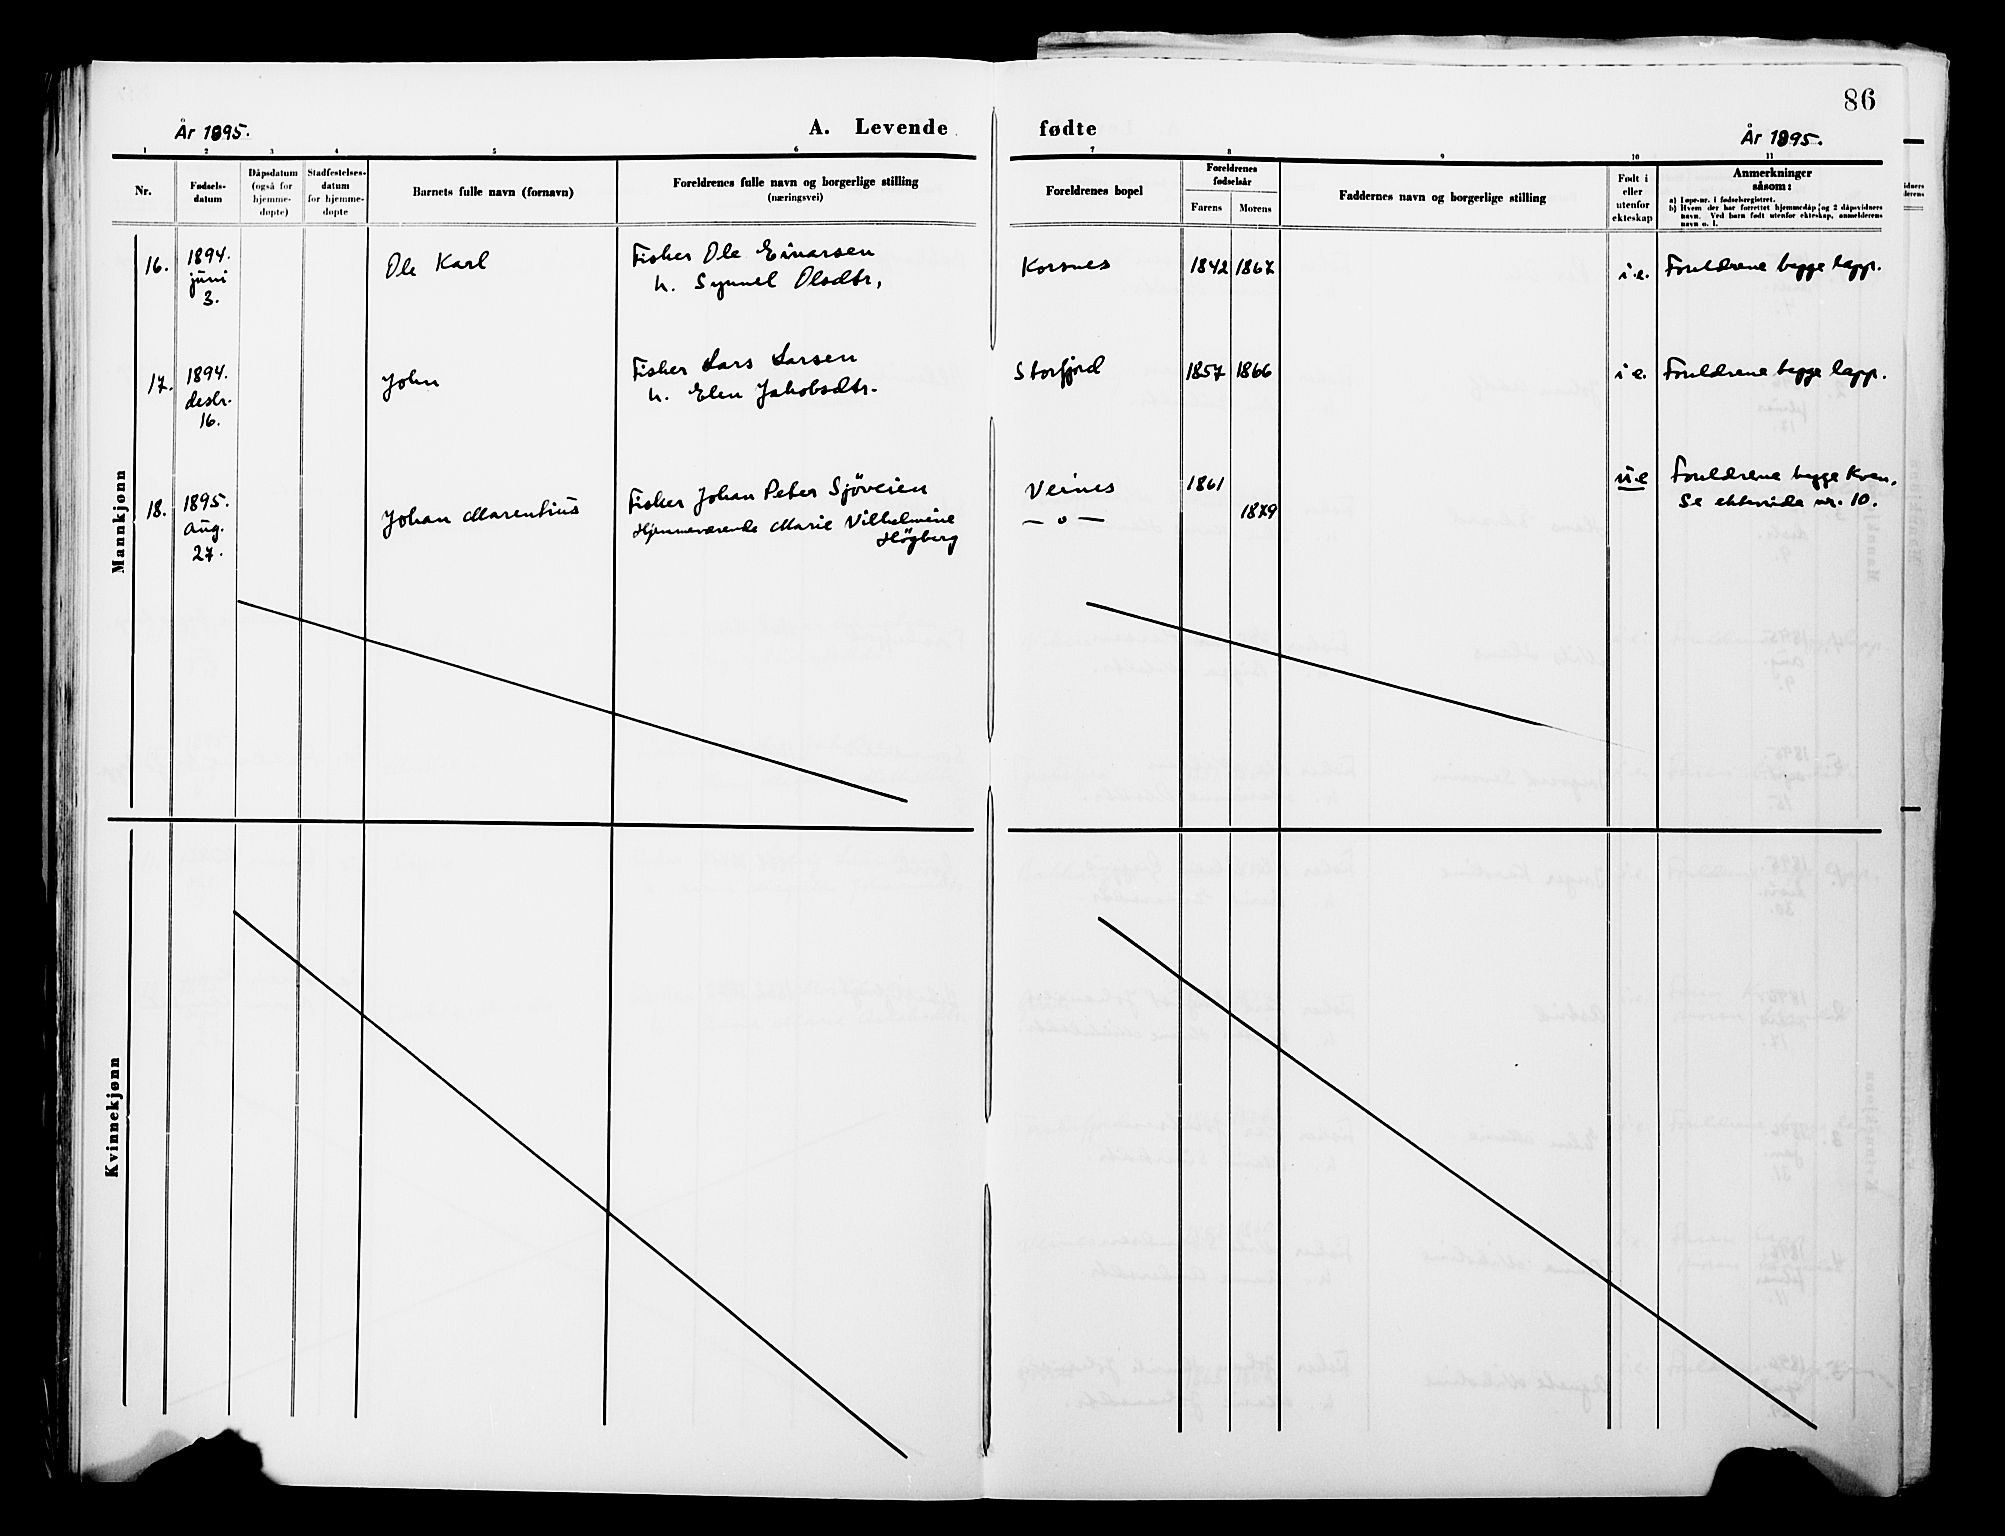 86
År 1895.
A. Levende
fødte
År 1895.
1 2 3 4 5 6 7 8 9 10 11
Nr.
Fødsels-
datum
Dåpsdatum
(også for
hjemme-
døpte)
Stadfestelses-
datum
for hjemme-
døpte
Barnets fulle navn (fornavn)
Foreldrenes fulle navn og borgerlige stilling
(næringsvei)
Foreldrenes bopel
Foreldrenes
fødselsår
Farens Morens
Faddernes navn og borgerlige stilling
Født i
eller
utenfor
ekteskap
Anmerkninger
såsom:
a) Løpe-nr. i fødselsregistret.
b) Hvem der har forrettet hjemmedåp og 2 dåpsvidners
navn. Ved barn født utenfor ekteskap, anmelderens
navn o. l.
Mannkjønn
16.
1894.
juni
3.
Ole Karl
Fisker Ole Einarsen
h. Synnel Olsdtr,
Korsnes
1842 1867
i.e.
Foreldrene begge lapp.
17.
1894.
desbr.
16.
John
Fisker Lars Larsen
h. Elen Jakobsdtr.
Storfjord
1857 1866
i e.
Foreldrene begge lapp.
18.
1895.
Aug.
27.
Johan Marentius
Fisker Johan Peter Sjöveien
Hjemmeværende Marie Vilhelmine
Högberg
Veines
— o —
1861
1879
u.e
Foreldrene begge Kven.
Se ekteviede nr. 10.
Kvinnekjønn